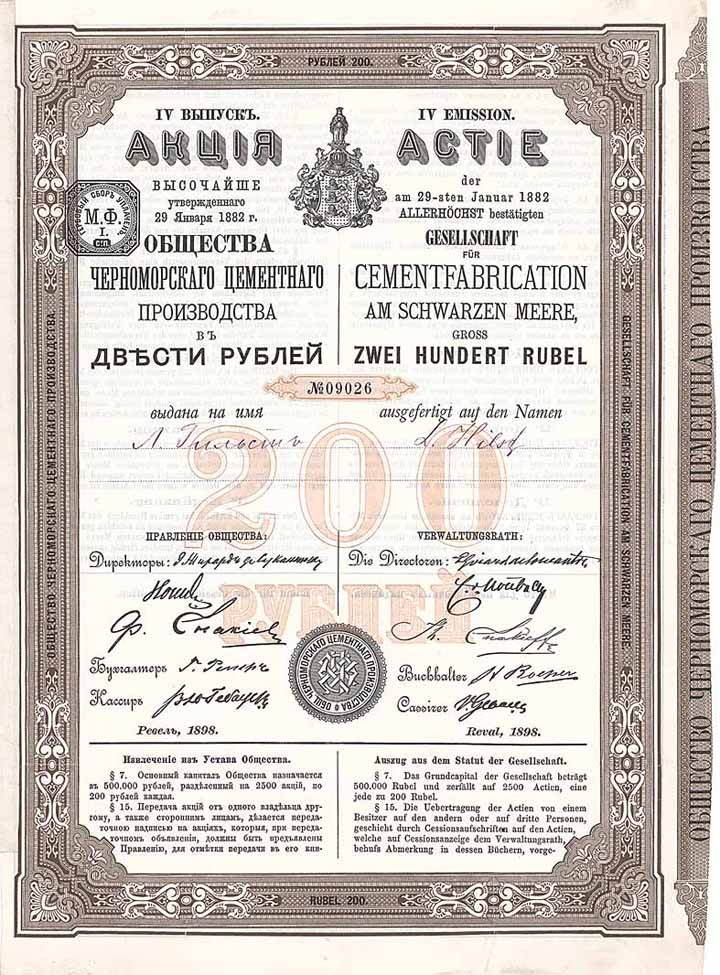 РУБЛЕЙ 200.
IV ВЫПУСКЪ.
АКЦІЯ
ВЫСОЧАЙШЕ
утвержденнаго
29 Января 1882 г.
ОБЩЕСТВА
ЧЕРНОМОРСКАГО ЦЕМЕНТНАГО
ПРОИЗВОДСТВА
ВЪ
ДВѢСТИ РУБЛЕЙ
IV EMISSION.
ACTIE
der
am 29-sten Januar 1882
ALLERHÖCHST bestätigten
GESELLSCHAFT
FÜR
CEMENTFABRICATION
AM SCHWARZEN MEERE,
GROSS
ZWEI HUNDERT RUBEL
ГЕРБОВЫЙ СБОРЪ УПЛАЧЕНЪ.
М.Ф.
I.
№09026
выдана на имя
Л. Гильстъ
ausgefertigt auf den Namen
L. Hilst
200
РУБЛЕЙ
ПРАВЛЕНІЕ ОБЩЕСТВА:
Директоры:
Бухгалтеръ
Кассиръ
Ревель, 1898.
VERWALTUNGSRATH:
Die Directoren:
Buchhalter
Cassirer
Reval, 1898.
ОБЩ. ЧЕРНОМОРСКАГО ЦЕМЕНТНАГО ПРОИЗВОДСТВА
Извлеченіе изъ Устава Общества.
§ 7. Основный капиталъ Общества назначается
въ 500.000 рублей, раздѣленный на 2500 акцій, по
200 рублей каждая.
§ 15. Передача акцій отъ одного владѣльца дру-
гому, а также стороннимъ лицамъ, дѣлается переда-
точною надписью на акціяхъ, которыя, при переда-
точномъ объявленіи, должны быть предъявлены
Правленію, для отмѣтки передачи въ его кни-
Auszug aus dem Statut der Gesellschaft.
§ 7. Das Grundcapital der Gesellschaft beträgt
500.000 Rubel und zerfällt auf 2500 Actien, eine
jede zu 200 Rubel.
§ 15. Die Uebertragung der Actien von einem
Besitzer auf den andern oder auf dritte Personen,
geschieht durch Cessionsaufschriften auf den Actien,
welche auf Cessionsanzeige dem Verwaltungsrath,
behufs Abmerkung in dessen Büchern, vorge-
RUBEL 200.
ОБЩЕСТВО ЧЕРНОМОРСКАГО ЦЕМЕНТНАГО ПРОИЗВОДСТВА.
GESELLSCHAFT FÜR CEMENTFABRICATION AM SCHWARZEN MEERE.
ОБЩЕСТВО ЧЕРНОМОРСКАГО ЦЕМЕНТНАГО ПРОИЗВОДСТВА.